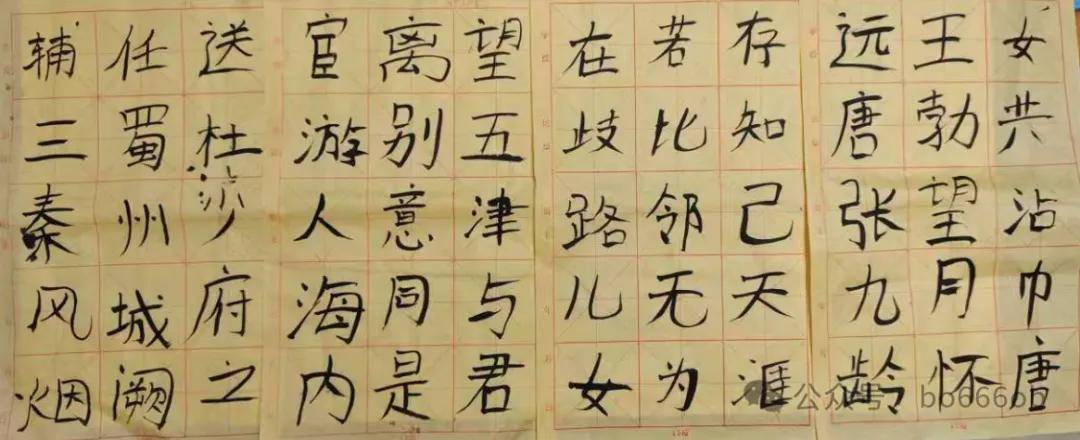 送杜少府之
任蜀州城阙
辅三秦风烟
望五津与君
离别意同是
宦游人海内
存知己天涯
若比邻无为
在歧路儿女
女共沾巾唐
王勃望月怀
远唐张九龄
公众号